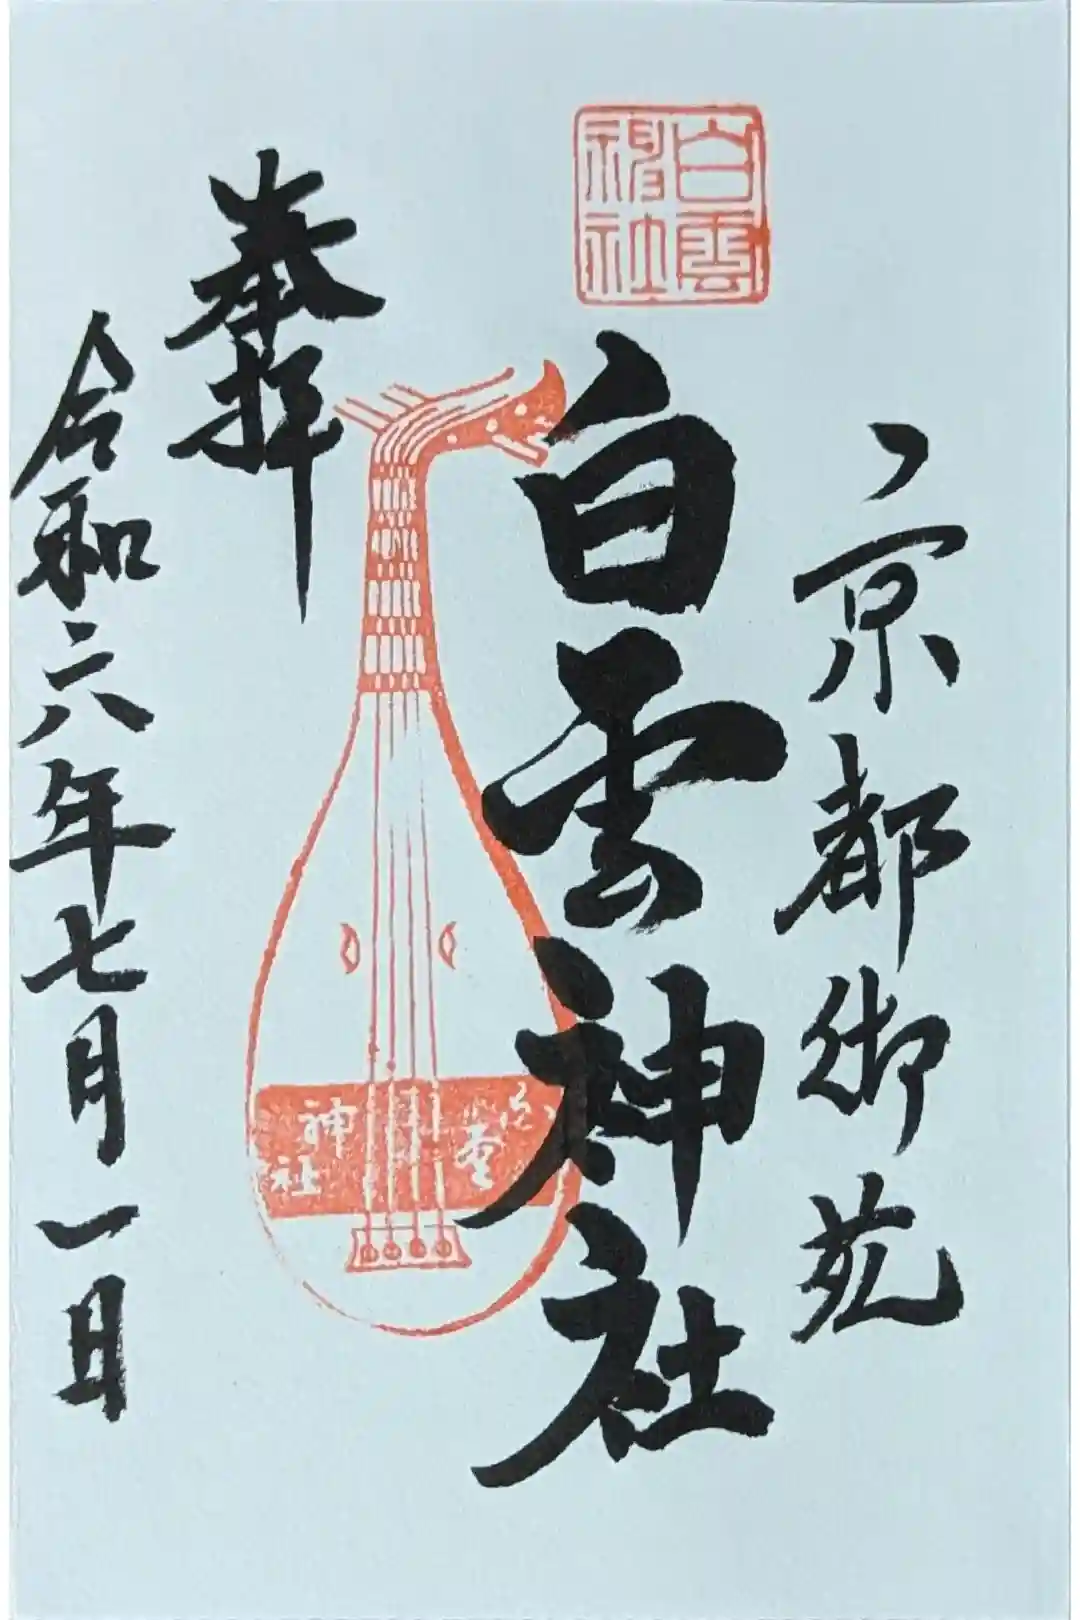 京都御苑
白雲神社
白雲神社
奉拝
令和六年七月一日
神社